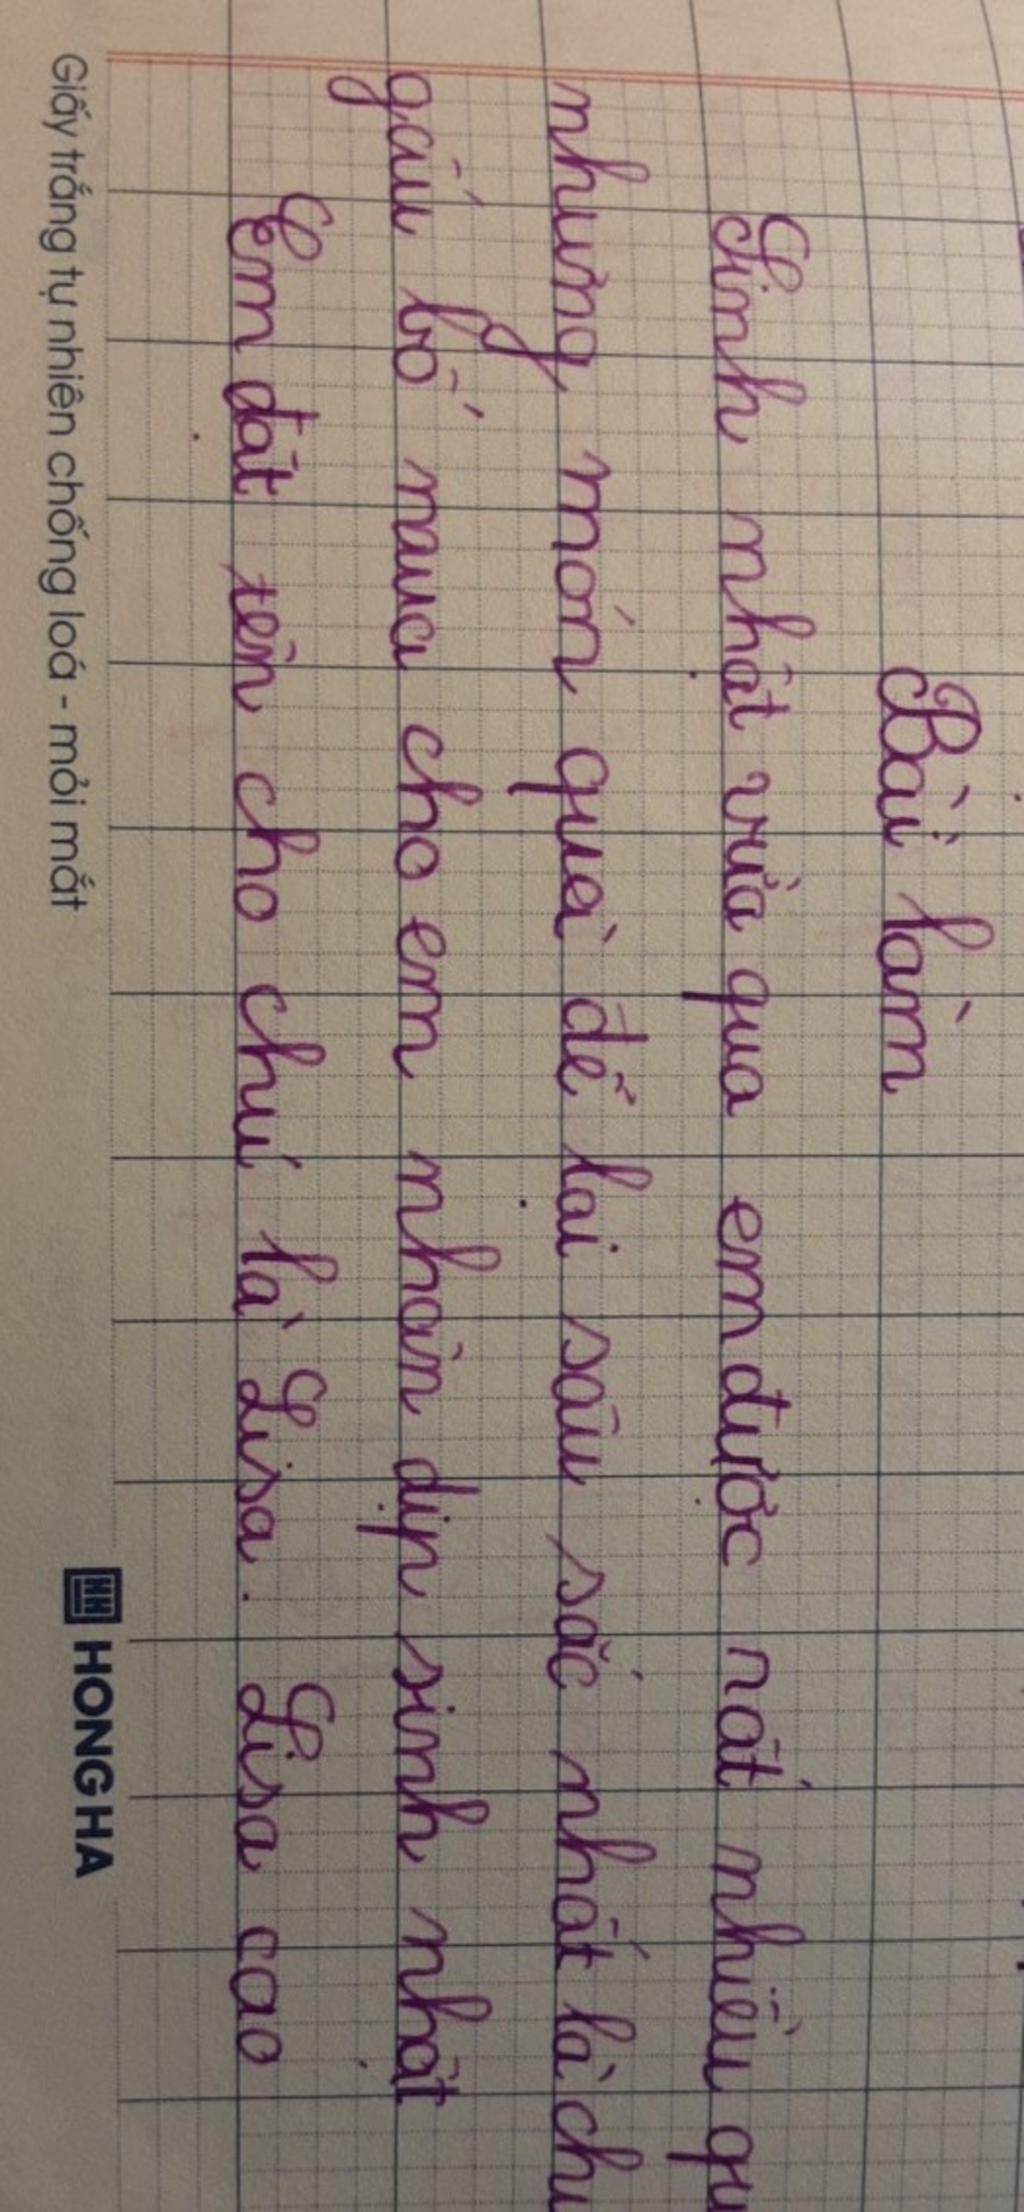 Bài làm
Sinh nhật vừa qua em được rất nhiều
những món quà để lại sâu sắc nhất là
gấu bố mua cho em nhân dịp sinh nhật
Em đặt tên cho chú là Lisa. Lisa cao
Giấy trắng tự nhiên chống loá - mỏi mắt
HH HONG HA